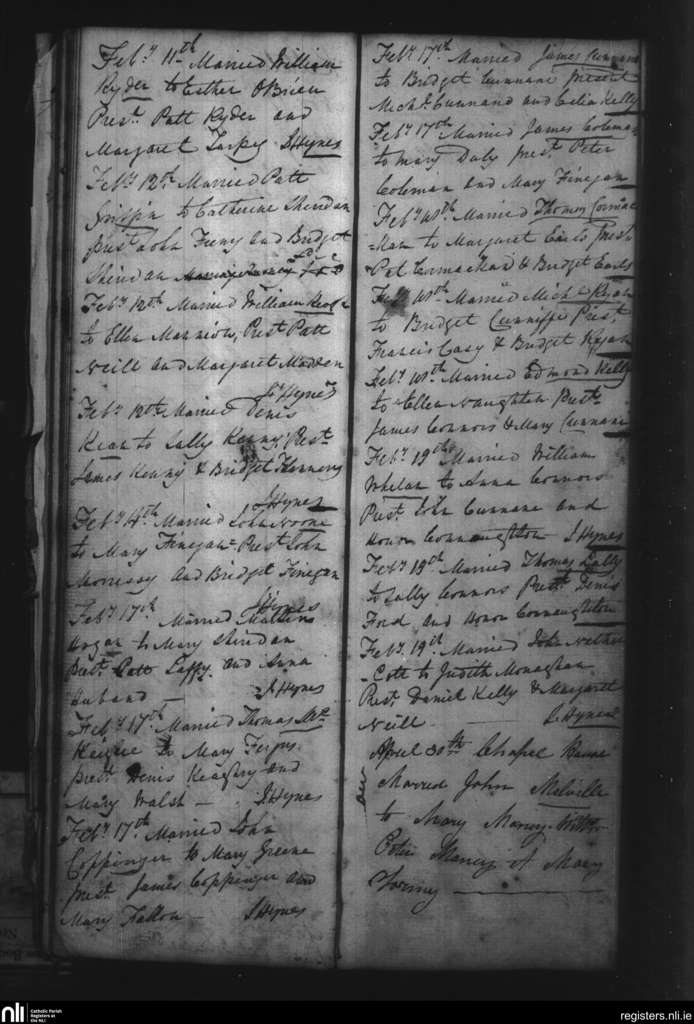 Feby 11th Married William
Ryder to Esther OBrien
Prest. Patt Ryder and
Margaret Tarpey JHynes
Feby 12th Married Patt
Griffin to Catherine Sheridan
prest John Feeny and Bridget
Sheridan
Feby 12th Married William
to Ellen Mannion, Prest Patt
Neill and Margaret Madden
Js Hynes
Feby 12th Married Denis
Kean to Sally Kenny, Prest.
James Kenny & Bridget Flannery
JHynes
Feby 14th Married John Noone
to Mary Finegan Prest John
Morrissy and Bridget Finegan
JHynes
Feby 17th Married
Horan to Mary Sheridan
Prest. Patt Laffy and Anna
Huband — JHynes
Feby 17th Married Thomas Mc
to Mary Fergus
prest. Denis Keaghry and
Mary Walsh — JHynes
Feby 17th Married John
Coppinger to Mary Greene
prest. James Coppinger and
Mary Fallon — JHynes
Feby 17th Married James Cunnane
to Bridget Cunnane present
Michl Cunnand and Celia Kelly
Feby 17th Married James Coleman
to Mary Daly prest. Peter
Coleman and Mary Finegan
Feby 18th Married Thomas Cormac
-kan to Margaret Earls Prest
Pat Cormackan & Bridget Earls
Feby 18th Married Michl Kyan
to Bridget Cunniffe Prest.
Francis Casy & Bridget Kyan
Feby 18th Married Edmond Kelly
to Ellen Naughten Prest.
James Connors & Mary Cunnane
Feby 19th Married William
Whelan to Anna Connors
Prest. John Cunnane and
Honor Connaughton JHynes
Feby 19th Married Thomas Lally
to Sally Connors Prest. Denis
Ford and Honor Connaughton
Feby 19th Married John Nether
-Cott to Judith Monaghan
Prest. Daniel Kelly & Margaret
Neill — JHynes
April 30th Chapel
Married John Melville
to Mary Mancy
Peter Mancy & Mary
nli
Catholic Parish
Registers at
the NLI
registers.nli.ie